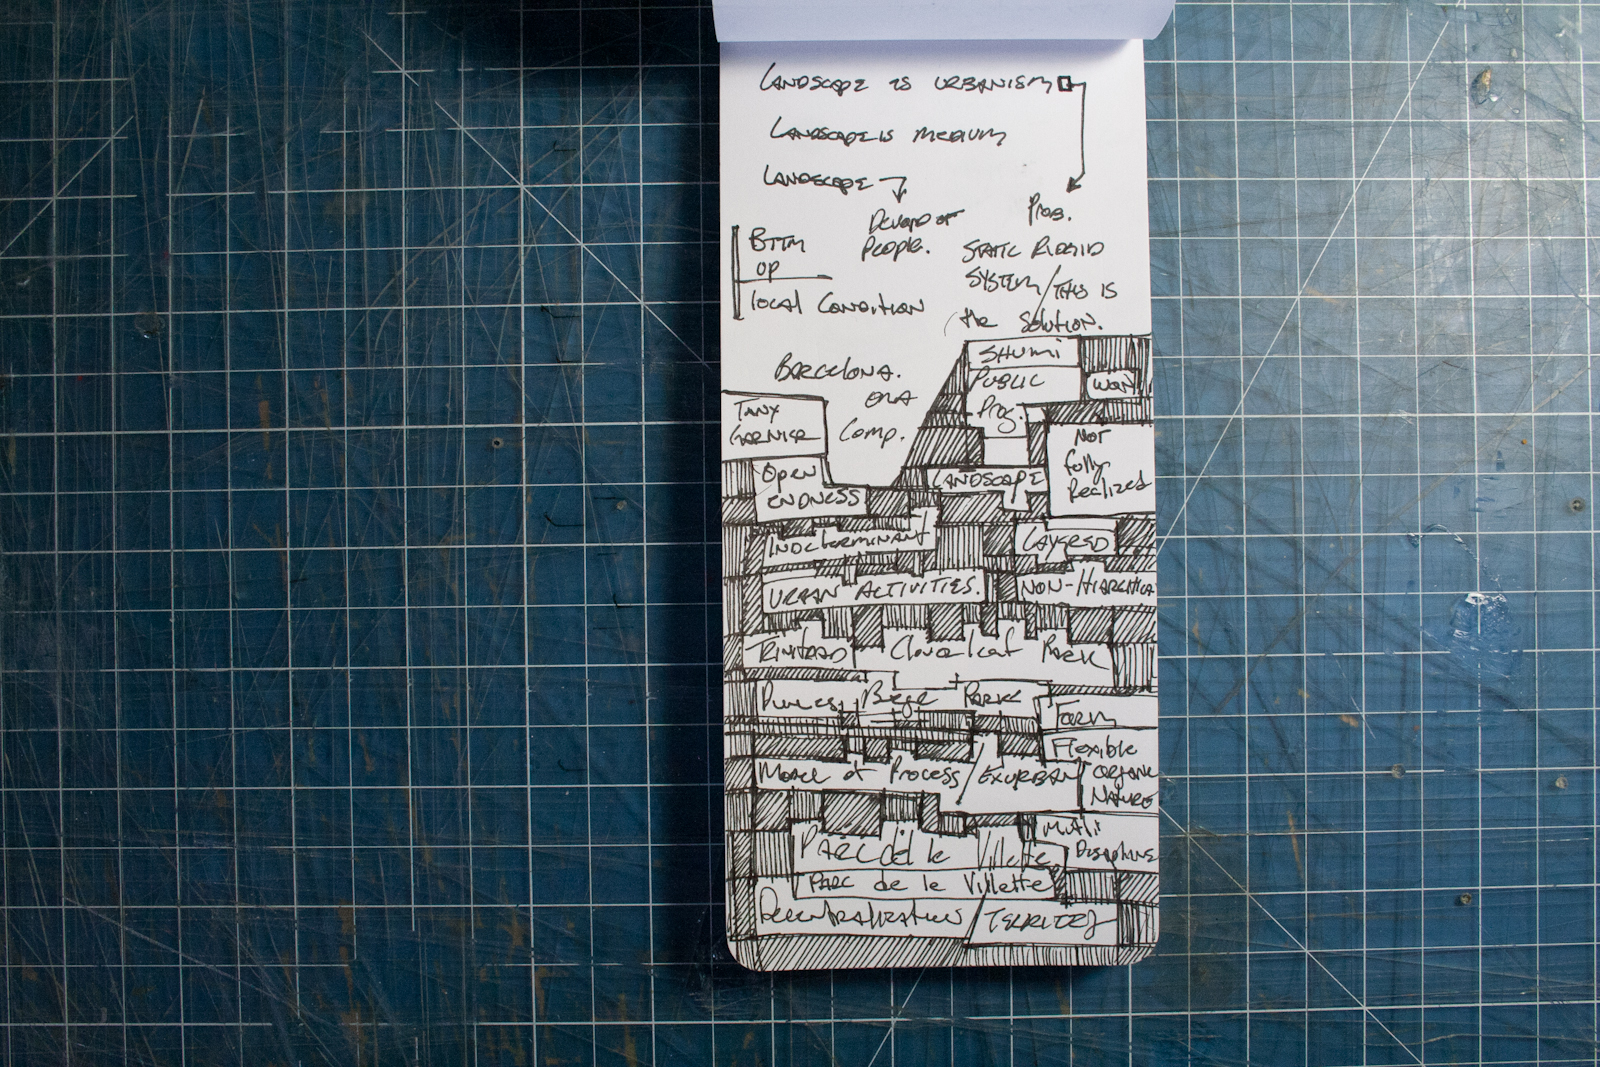 LANDSCAPE IS URBANISM
LANDSCAPE IS MEDIUM
LANDSCAPE
DEVOID OF
PEOPLE.
PROB.
STATIC RIGID
SYSTEM / THIS IS
the SOLUTION.
BTTM
UP
local CONDITION
BARCELONA.
Comp.
TONY
GARNIER
SHUMI
PUBLIC
Prog.
WON
NOT
fully
Realized
OPEN
ENDNESS
LANDSCAPE
INDETERMINANT
LAYERED
URBAN ACTIVITIES.
NON-HIARCHICA
TRINITARD
Cloverleaf PARK
PARK
FORM
Flexible
ORGANIC
NATURE
Model of Process / EXURBAN
Multi
DISCIPLINE
PARC de le Villette
PARC de le Villette
Decentralization / TERRITORY